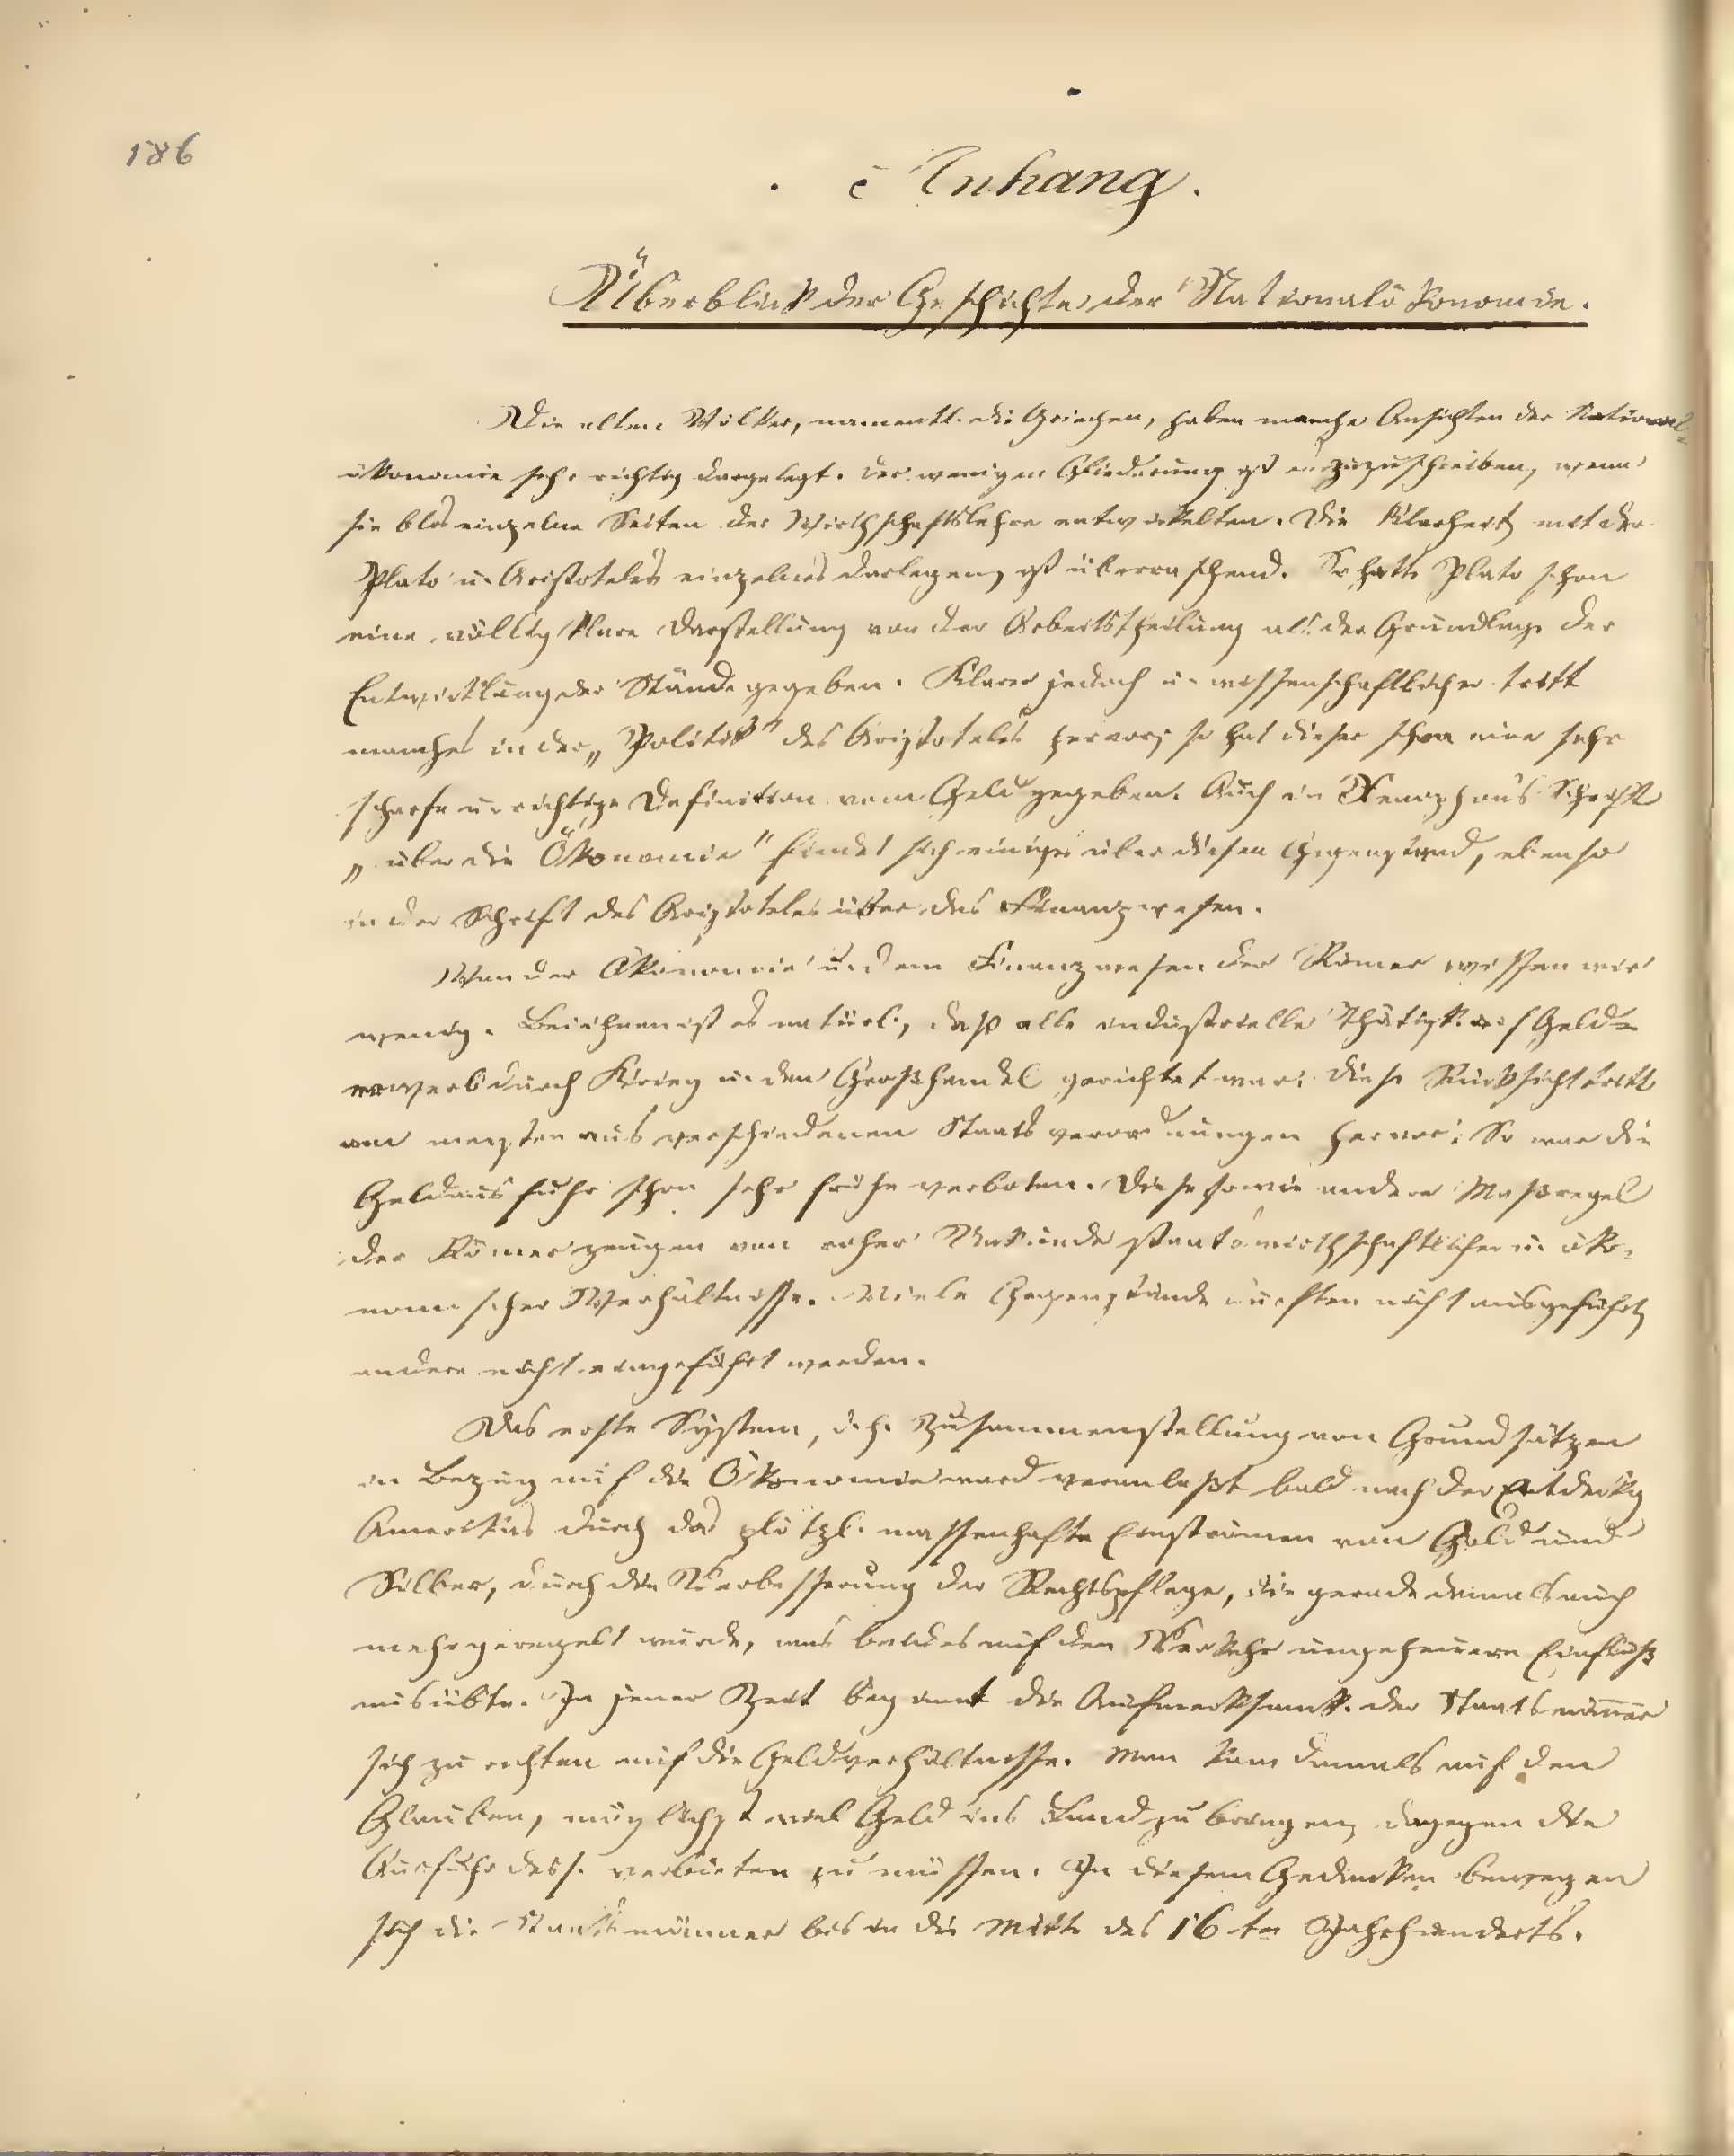 186
Anhang.
Überblick der Geschichte der Nationalökonomie.
Die alten Völker, namentl. die Griechen, haben manche Ansichten der National-
ökonomie sehr richtig dargelegt. Der wenigen Gliederung ist zuzuschreiben, wenn
sie blos einzelne Seiten der Wirthschaftslehre entwickelten. Die Klarheit, mit der
Plato u. Aristoteles einzelnes darlegen, ist überraschend. So hatte Plato schon
eine völlig klare Darstellung von der Arbeitstheilung als der Grundlage der
Entwicklung der Stände gegeben. Klarer jedoch u. wissenschaftlicher tritt
manches in der „Politik" des Aristoteles hervor; so hat dieser schon eine sehr
scharfe u. richtige Definition vom Geld gegeben. Auch in Xenophons Schrift
„über die Ökonomie" findet sich einiges über diesen Gegenstand, ebenso
in der Schrift des Aristoteles über das Finanzwesen.
Von der Ökonomie und dem Finanzwesen der Römer wissen wir
wenig. Bei ihnen ist es natürl., daß alle industrielle Thätigk. auf Geld-
erwerb durch Krieg u. den Großhandel gerichtet war; diese Rücksicht tritt
am meisten aus verschiedenen Staatsverordnungen hervor: So war die
Geldausfuhr schon sehr frühe verboten. Diese sowie andere Maßregel
der Römer zeugen von roher Unkunde staatswirthschaftlicher u. öko-
nomischer Verhältnisse. Viele Gegenstände durften nicht ausgeführt,
andere nicht eingeführt werden.
Das erste System, d. h. Zusammenstellung von Grundsätzen
in Bezug auf die Ökonomie ward veranlaßt bald nach der Entdeckg
Amerikas durch das plötzl. massenhafte Einströmen von Gold und
Silber, durch die Verbesserung der Rechtspflege, die gerade damals auch
mehr geregelt wurde, was beides auf den Verkehr ungeheuern Einfluß
ausübte. In jener Zeit beginnt die Aufmerksamk. der Staatsmänner
sich zu richten auf die Geldverhältnisse. Man kam damals auf den
Glauben, möglichst viel Geld ins Land zu bringen, dagegen die
Ausfuhr dess. verbieten zu müssen. In diesem Gedanken bewegen
sich die Staatsmänner bis in die Mitte des 16ten Jahrhunderts.